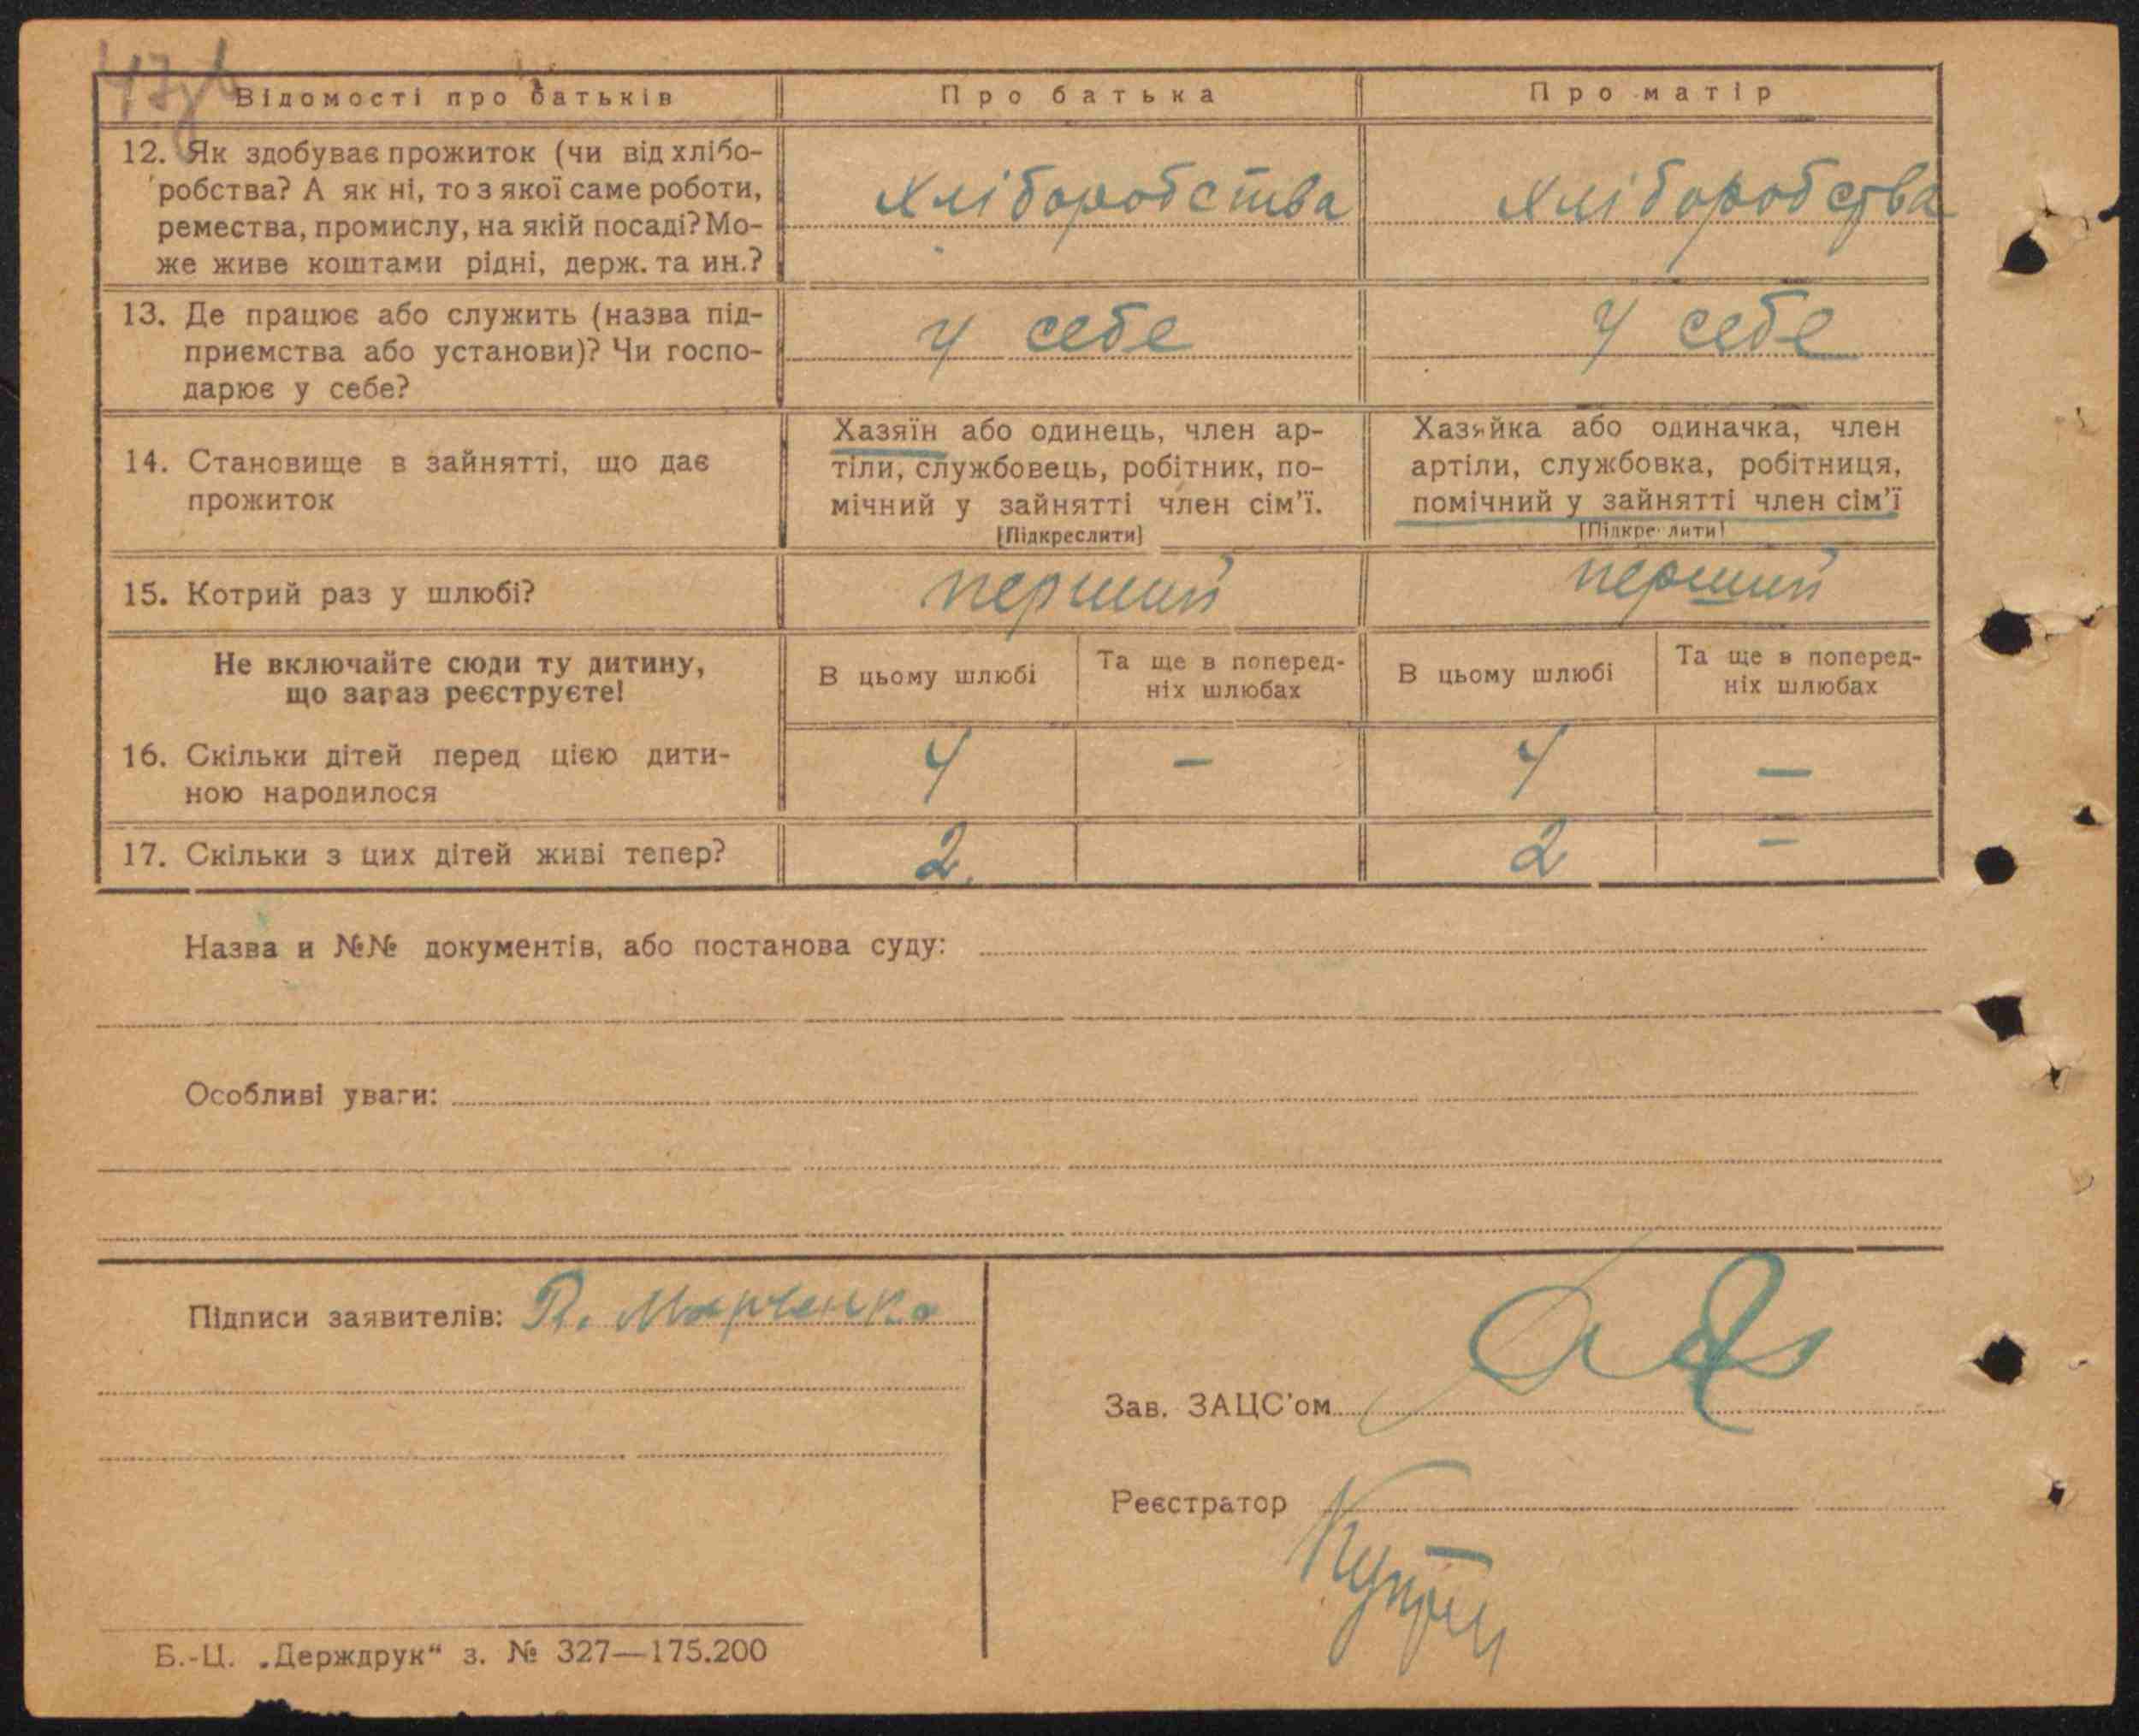 Відомості про батьків Про батька Про матір
12. Як здобуває прожиток (чи від хлібо-
робства? А як ні, то з якої саме роботи,
ремества, промислу, на якій посаді? Мо-
же живе коштами рідні, держ. та ин.?
хліборобства хліборобства
13. Де працює або служить (назва під-
приємства або установи)? Чи госпо-
дарює у себе?
у себе у себе
14. Становище в зайнятті, що дає
прожиток
Хазяїн або одинець, член ар-
тіли, службовець, робітник, по-
мічний у зайнятті член сім'ї.
[Підкреслити]
Хазяйка або одиначка, член
артіли, службовка, робітниця,
помічний у зайнятті член сім'ї
[Підкреслити]
15. Котрий раз у шлюбі? перший перший
Не включайте сюди ту дитину,
що зараз реєструєте!
В цьому шлюбі
Та ще в поперед-
ніх шлюбах
В цьому шлюбі
Та ще в поперед-
ніх шлюбах
16. Скільки дітей перед цією дити-
ною народилося
4 – 4 –
17. Скільки з цих дітей живі тепер? 2 2 –
Назва и №№ документів, або постанова суду:
Особливі уваги:
Підписи заявителів: П. Марченко
Зав. ЗАЦС'ом
Реєстратор
Б.-Ц. „Держдрук“ з. № 327—175.200